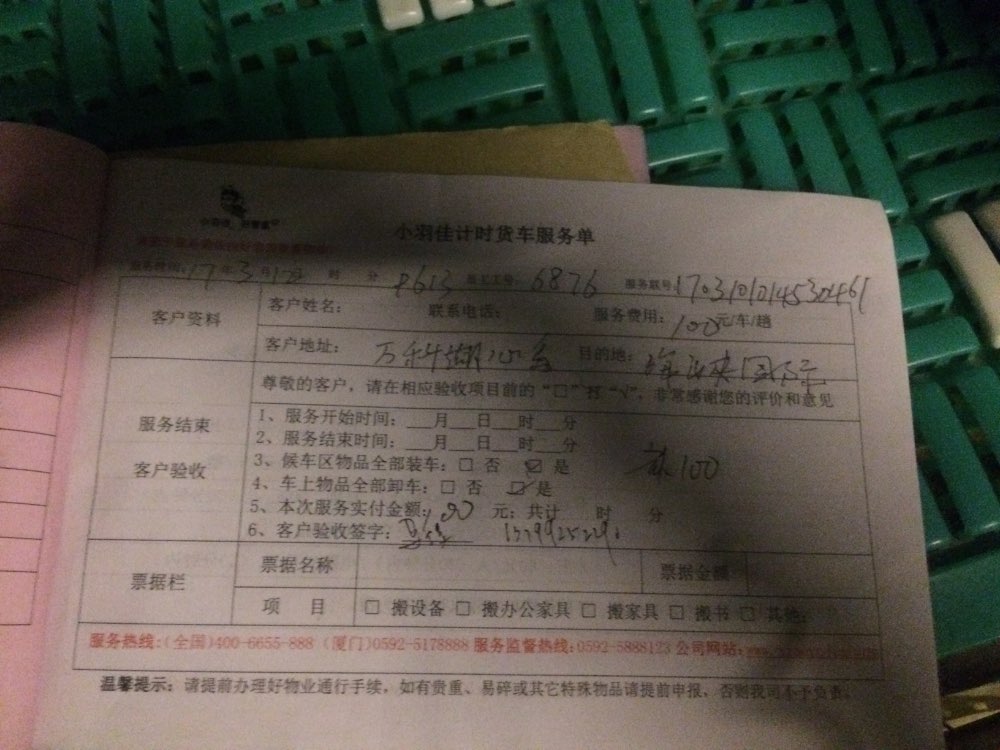 小羽佳计时货车服务单
17年3月12日 时 分 8613 员工工号: 6876 服务联号
客户资料
客户姓名: 联系电话: 服务费用: 100元/车/趟
客户地址: 万科湖心岛 目的地:
服务结束
客户验收
尊敬的客户，请在相应验收项目前的“□”打“√”，非常感谢您的评价和意见
1、服务开始时间: 月 日 时 分
2、服务结束时间: 月 日 时 分
3、候车区物品全部装车: □ 否 ☑ 是
100
4、车上物品全部卸车: □ 否 ☑ 是
5、本次服务实付金额: 元; 共计 时 分
6、客户验收签字:
票据栏
票据名称 票据金额
项 目 □ 搬设备 □ 搬办公家具 □ 搬家具 □ 搬书 □ 其他:
服务热线:(全国)400-6655-888 (厦门)0592-5178888 服务监督热线:0592-5888123 公司网站:
温馨提示: 请提前办理好物业通行手续，如有贵重、易碎或其它特殊物品请提前申报，否则我司不予负责。